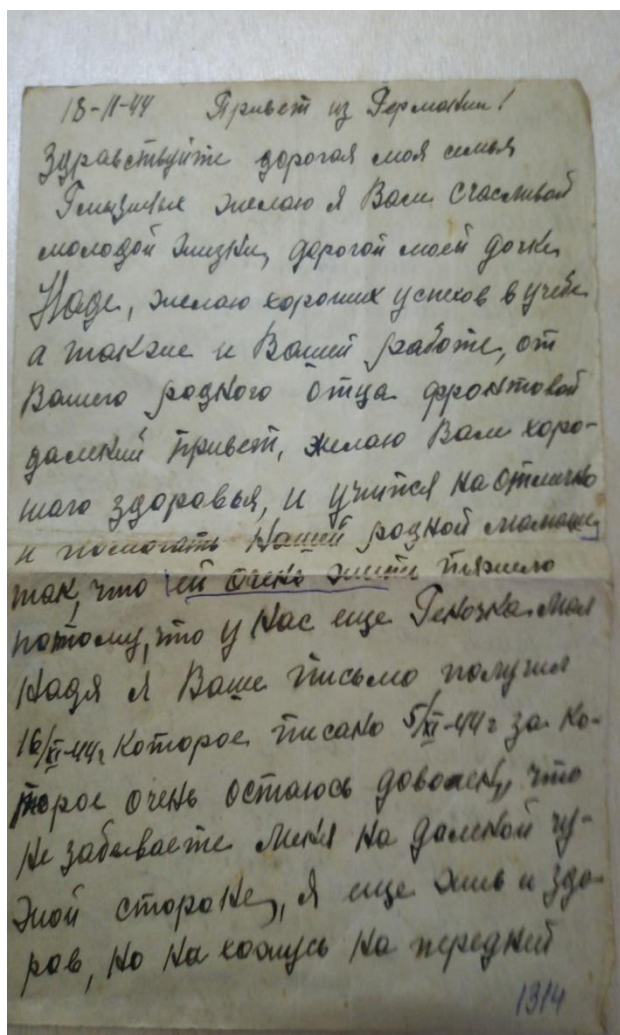 18-11-44 Привет из Германии!
Здравствуйте дорогая моя семья
желаю я Вам счастливой
молодой жизни, дорогой моей дочке
Наде, желаю хороших успехов в учебе
а также и Вашей работе, от
Вашего родного отца фронтовой
далекий привет, желаю Вам хоро-
шего здоровья, и учится на отлично
и помогать Нашей родной мамаше,
так, что ей очень жить тяжело
потому, что у нас еще Геночка. Моя
Надя я Ваше письмо получил
16/XI-44г которое писано 5/XI-44г за ко-
торое очень остаюсь доволен, что
не забываете меня на далекой чу-
жой стороне, я еще жив и здо-
ров, но нахожусь на передней
1314